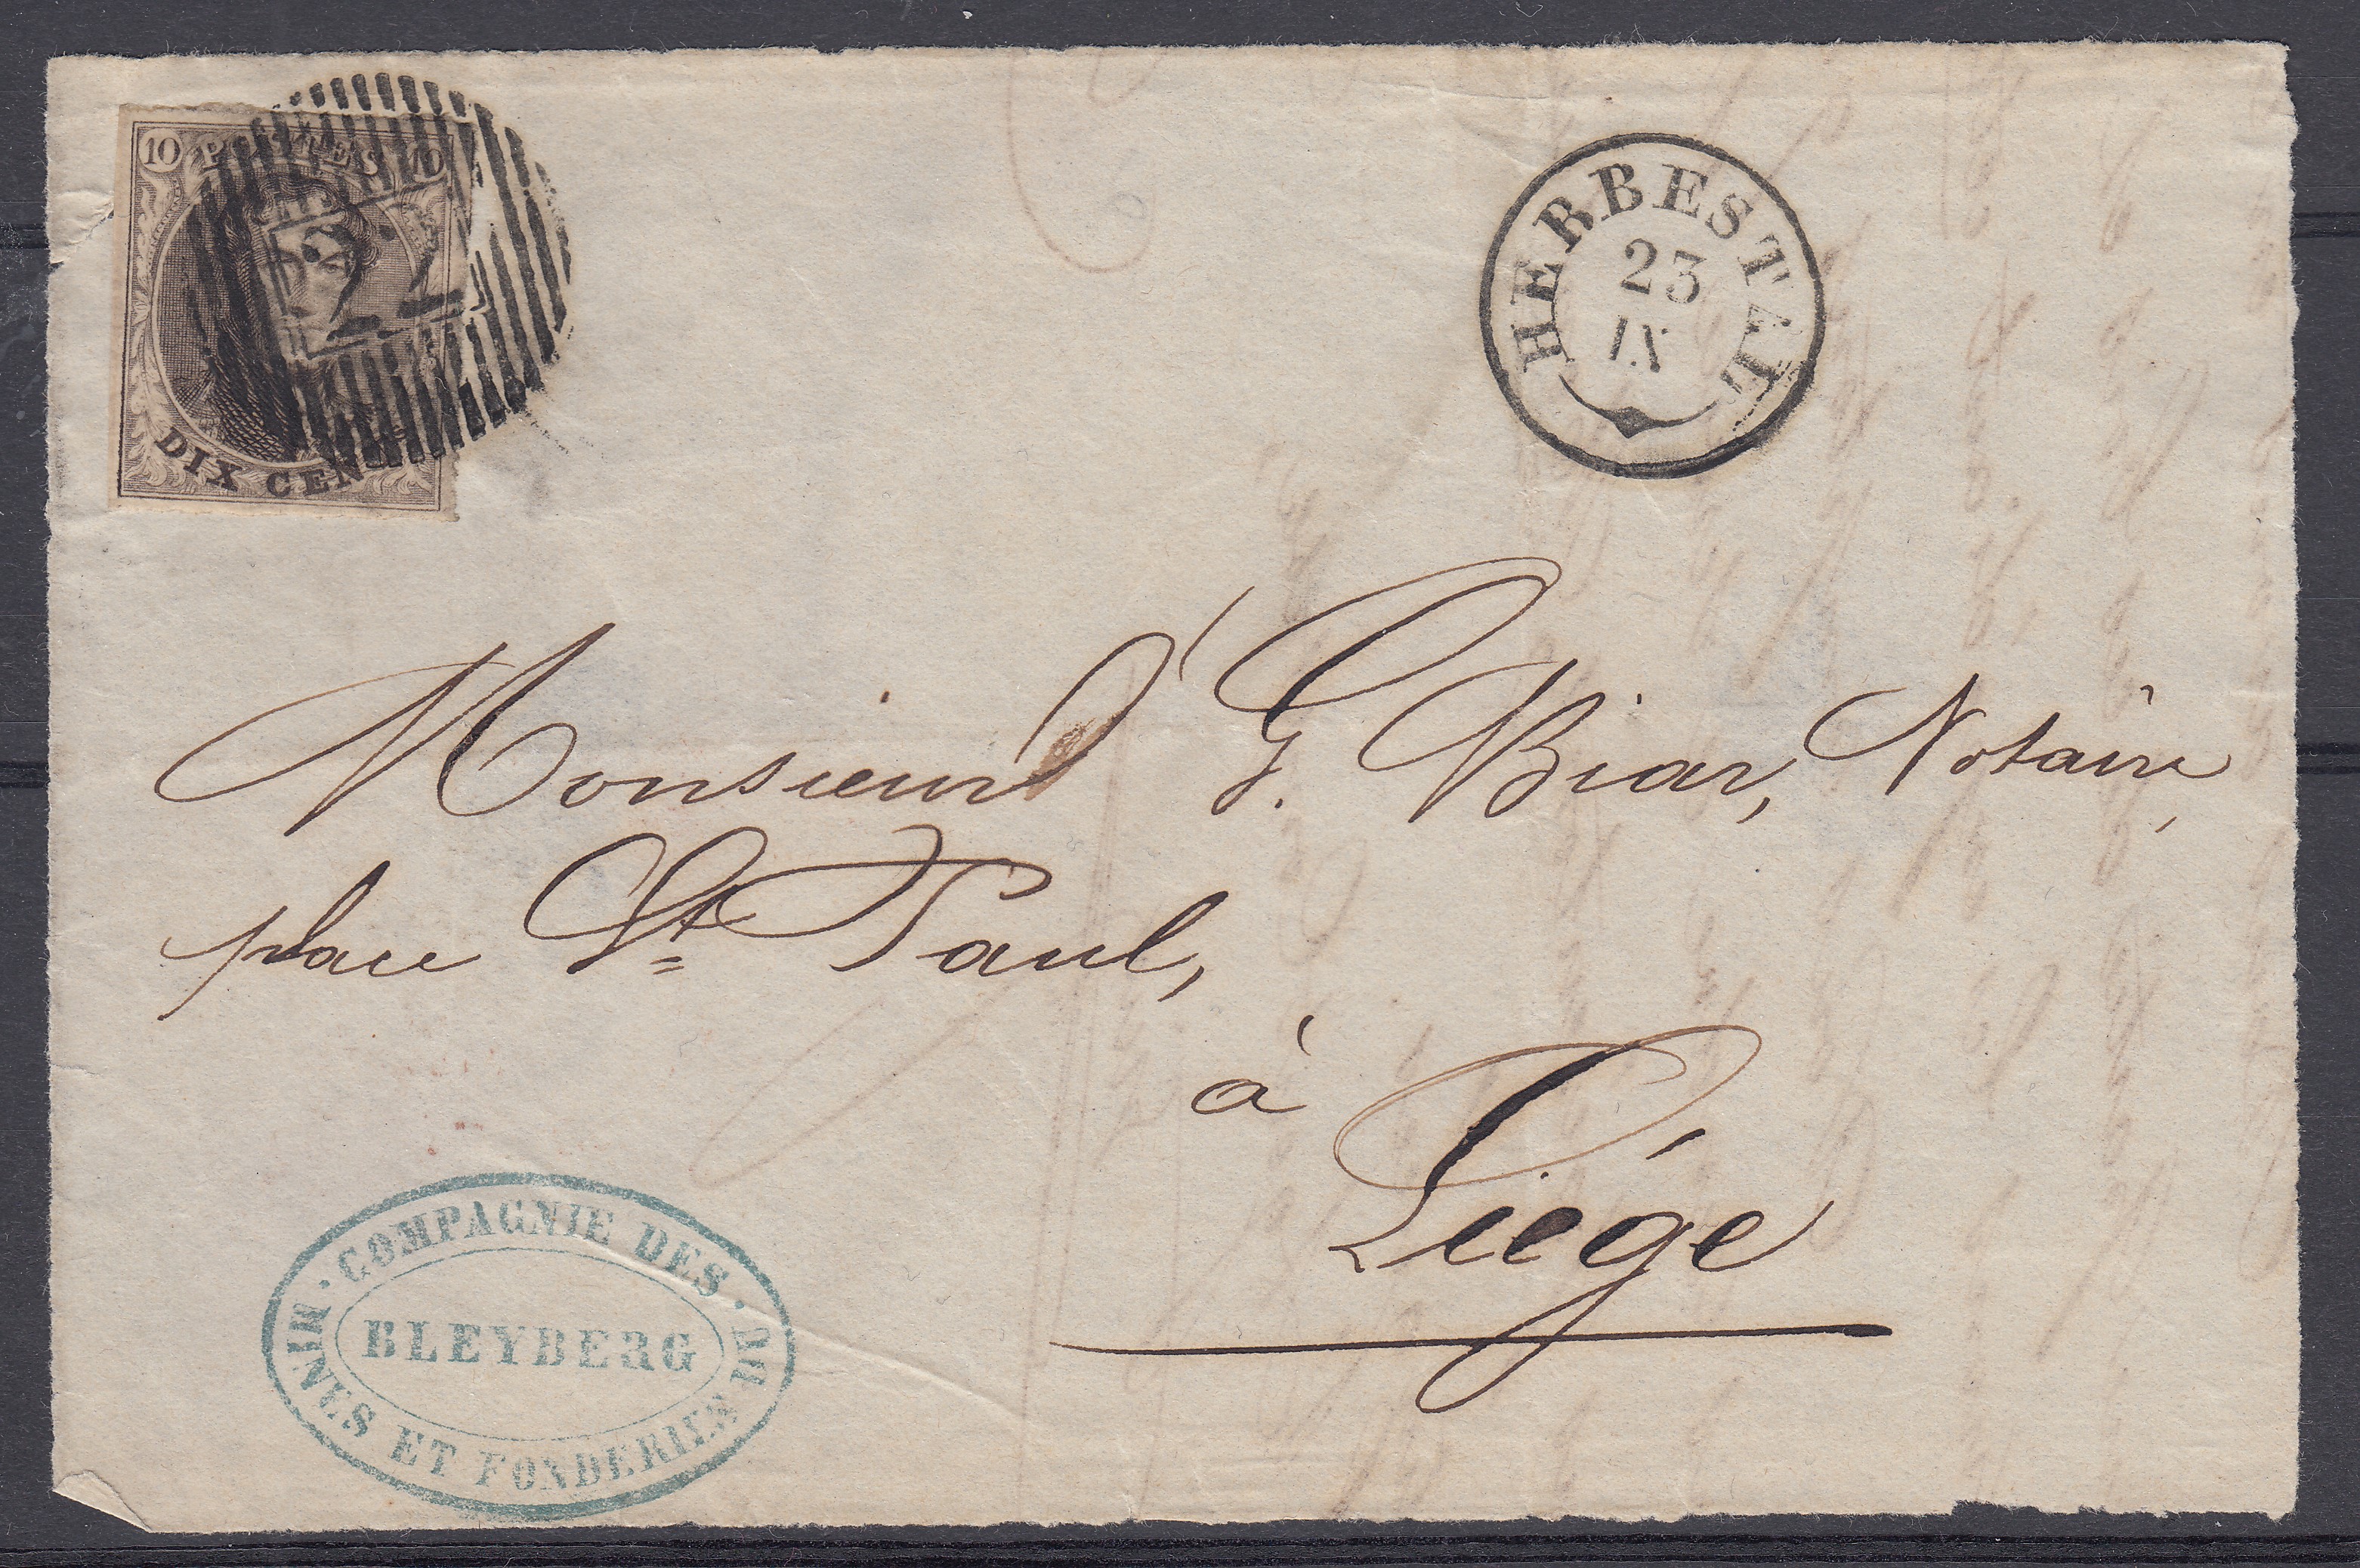 10 POSTES 10
DIX CENT
HERBESTAL
23
IX
Monsieur G. Biar, Notaire,
place St Paul,
à
Liége
COMPAGNIE DES
MINES ET FONDERIES DU
BLEYBERG